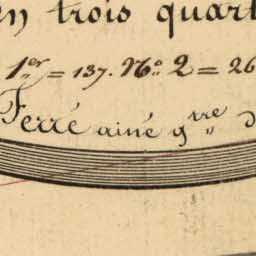 en trois quart
1.er = 137. N.o 2 = 26
Ferré ainé g.re